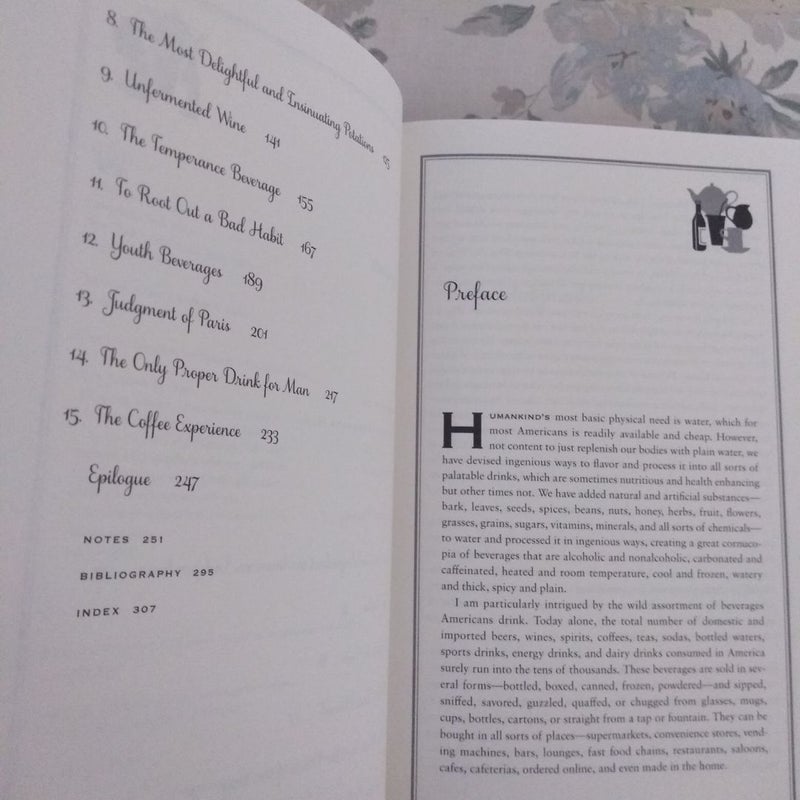 8. The Most Delightful and Insinuating Potations
9. Unfermented Wine 141
10. The Temperance Beverage 155
11. To Root Out a Bad Habit 167
12. Youth Beverages 189
13. Judgment of Paris 201
14. The Only Proper Drink for Man 217
15. The Coffee Experience 233
Epilogue 247
NOTES 251
BIBLIOGRAPHY 295
INDEX 307
Preface
HUMANKIND'S most basic physical need is water, which for
most Americans is readily available and cheap. However,
not content to just replenish our bodies with plain water, we
have devised ingenious ways to flavor and process it into all sorts of
palatable drinks, which are sometimes nutritious and health enhancing
but other times not. We have added natural and artificial substances—
bark, leaves, seeds, spices, beans, nuts, honey, herbs, fruit, flowers,
grasses, grains, sugars, vitamins, minerals, and all sorts of chemicals—
to water and processed it in ingenious ways, creating a great cornuco-
pia of beverages that are alcoholic and nonalcoholic, carbonated and
caffeinated, heated and room temperature, cool and frozen, watery
and thick, spicy and plain.
I am particularly intrigued by the wild assortment of beverages
Americans drink. Today alone, the total number of domestic and
imported beers, wines, spirits, coffees, teas, sodas, bottled waters,
sports drinks, energy drinks, and dairy drinks consumed in America
surely run into the tens of thousands. These beverages are sold in sev-
eral forms—bottled, boxed, canned, frozen, powdered—and sipped,
sniffed, savored, guzzled, quaffed, or chugged from glasses, mugs,
cups, bottles, cartons, or straight from a tap or fountain. They can be
bought in all sorts of places—supermarkets, convenience stores, vend-
ing machines, bars, lounges, fast food chains, restaurants, saloons,
cafes, cafeterias, ordered online, and even made in the home.